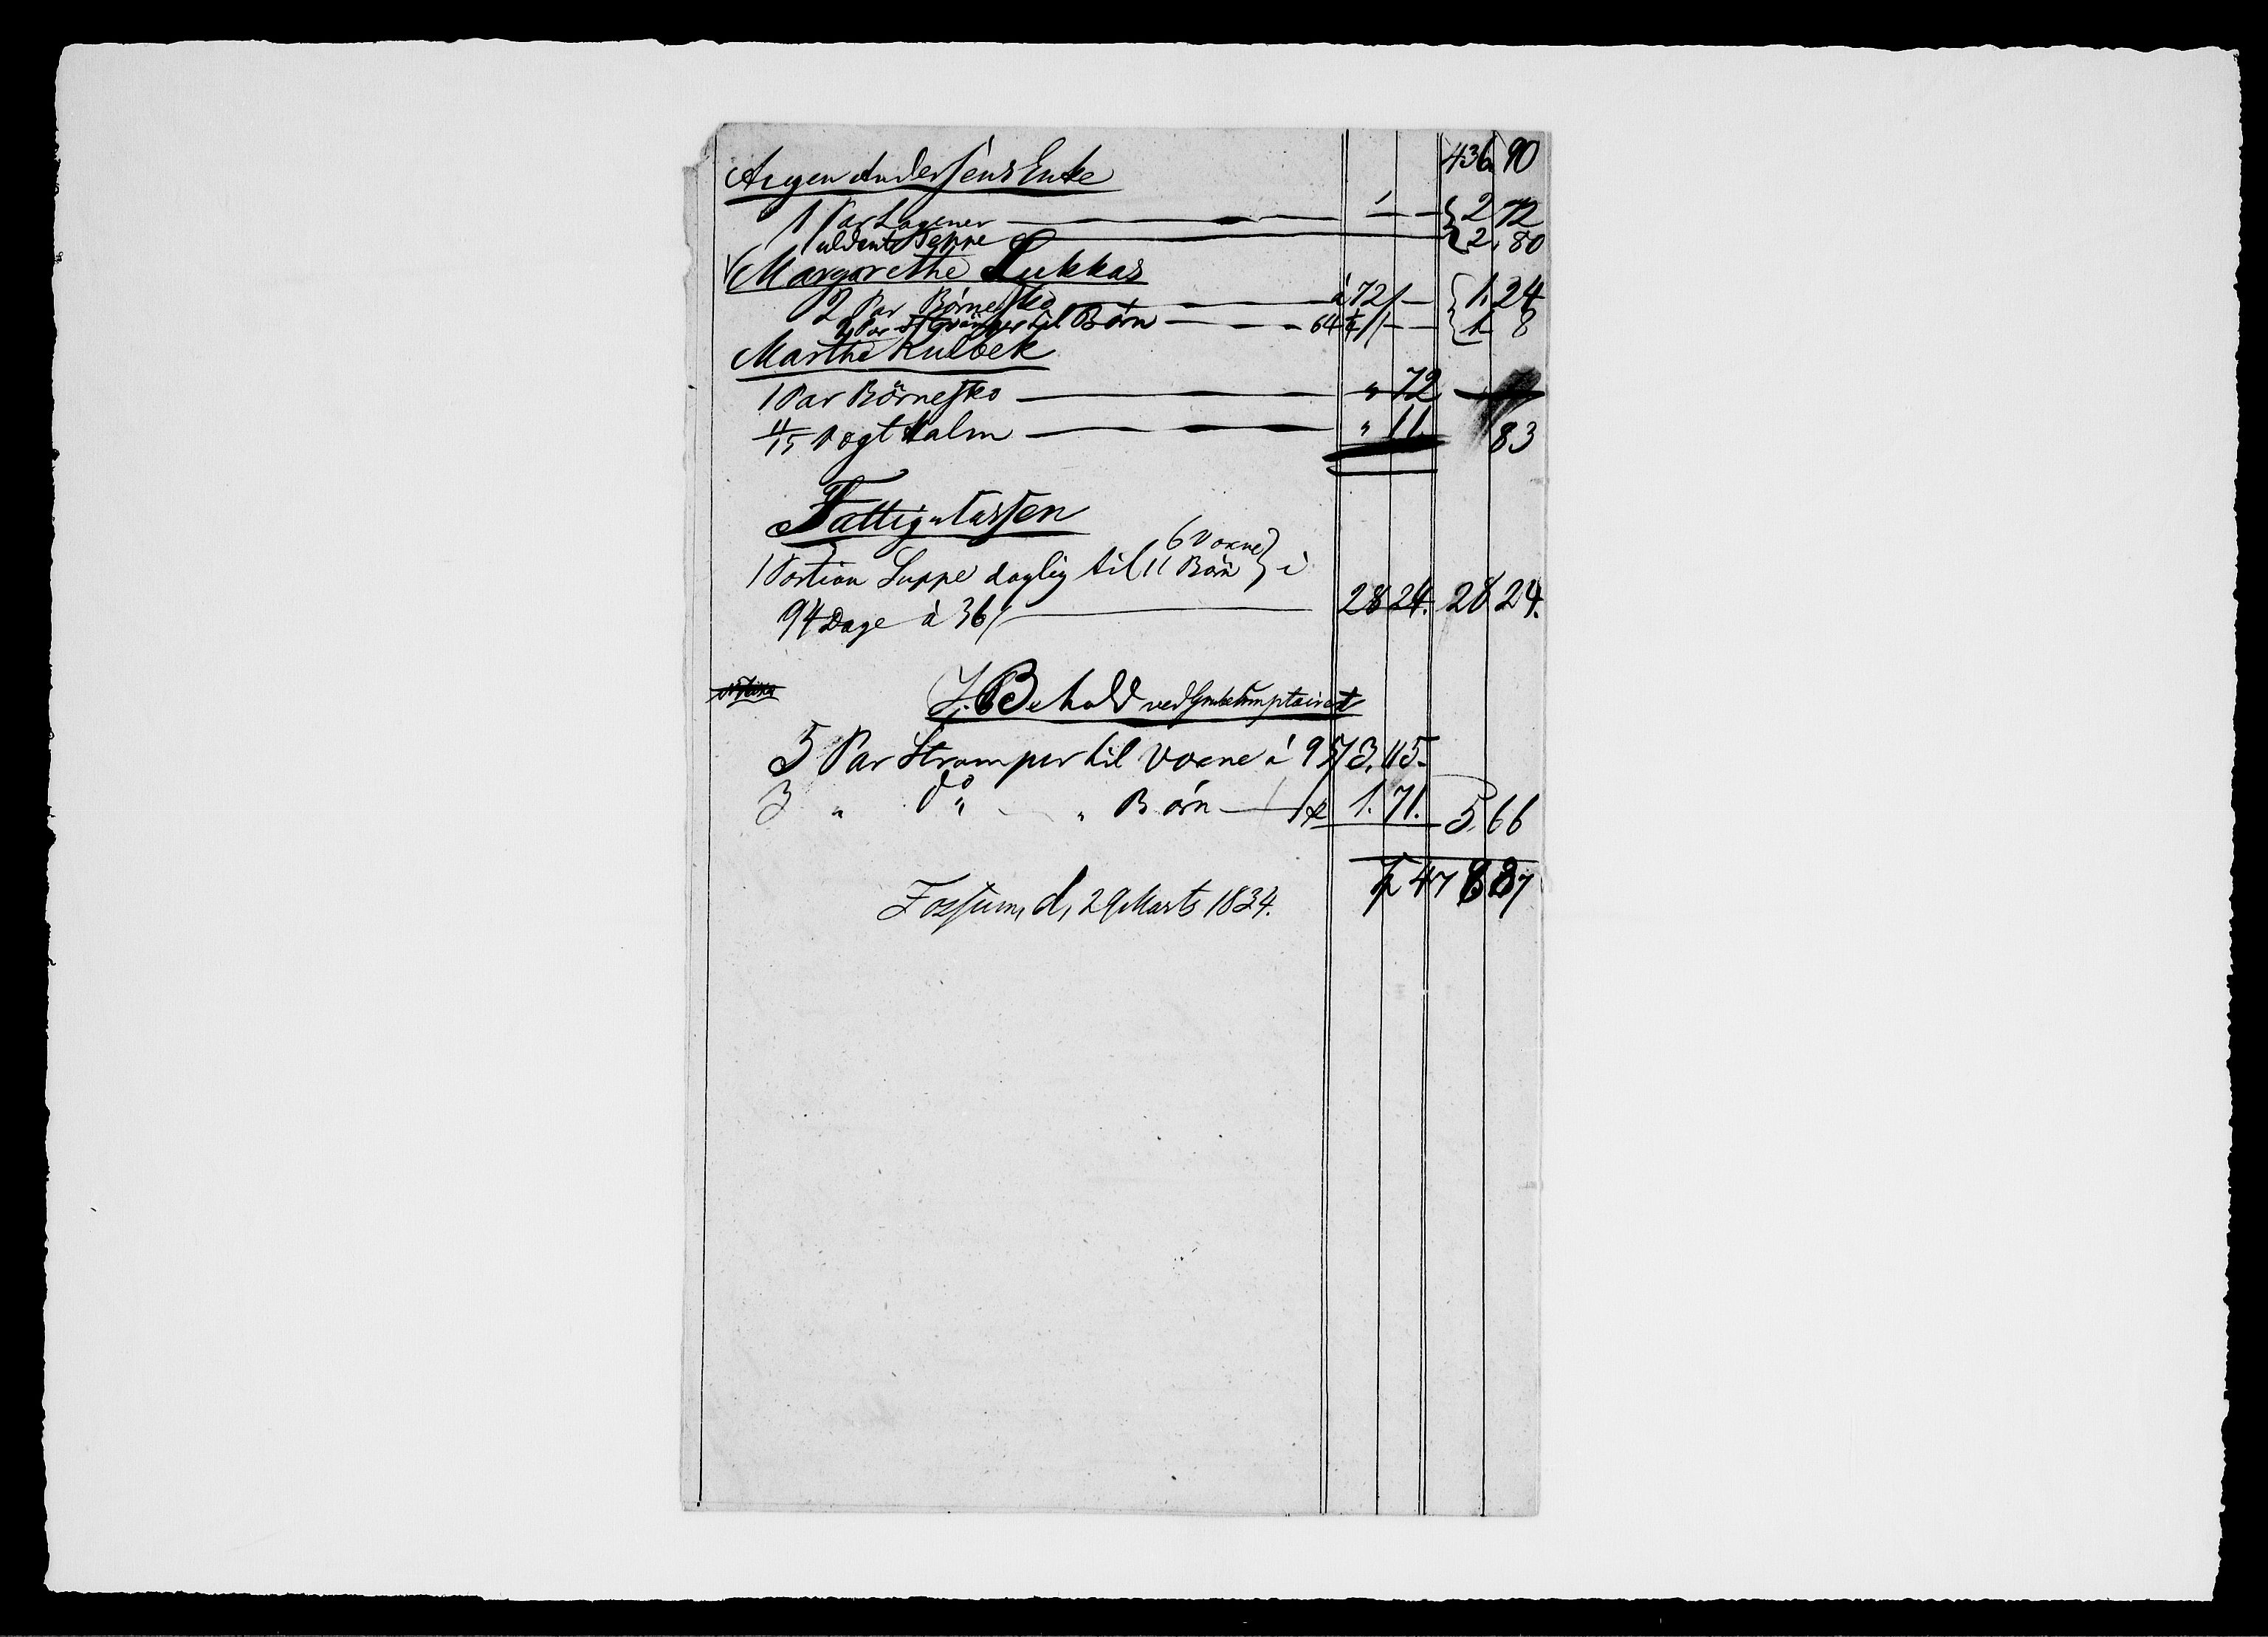 436. 90
Argen Andersens Enke
1 Par Lagener — 2 72
1 uldent Teppe — 2. 80
Margarethe Lukkas
2 Par Börnesko — á 72 / — 1. 24
2 Par Strömper til Börn — 64½ / — 1. 8
Marthe Kulbek
1 Par Börnesko — " 72
11/15 Vogt Halm — " 11. 83
Fattigcassen
1 Portion Suppe daglig til 6 Voxne 11 Börn } i
94 Dage à 36/ — 28 24. 28 24.
I. Behold ved
5 Par Strømper til Voxne á 95/ 3. 115.
3 " do " " Børn — 1. 71. 5. 66
478. 87
Fossum, d, 29 Marts 1834.